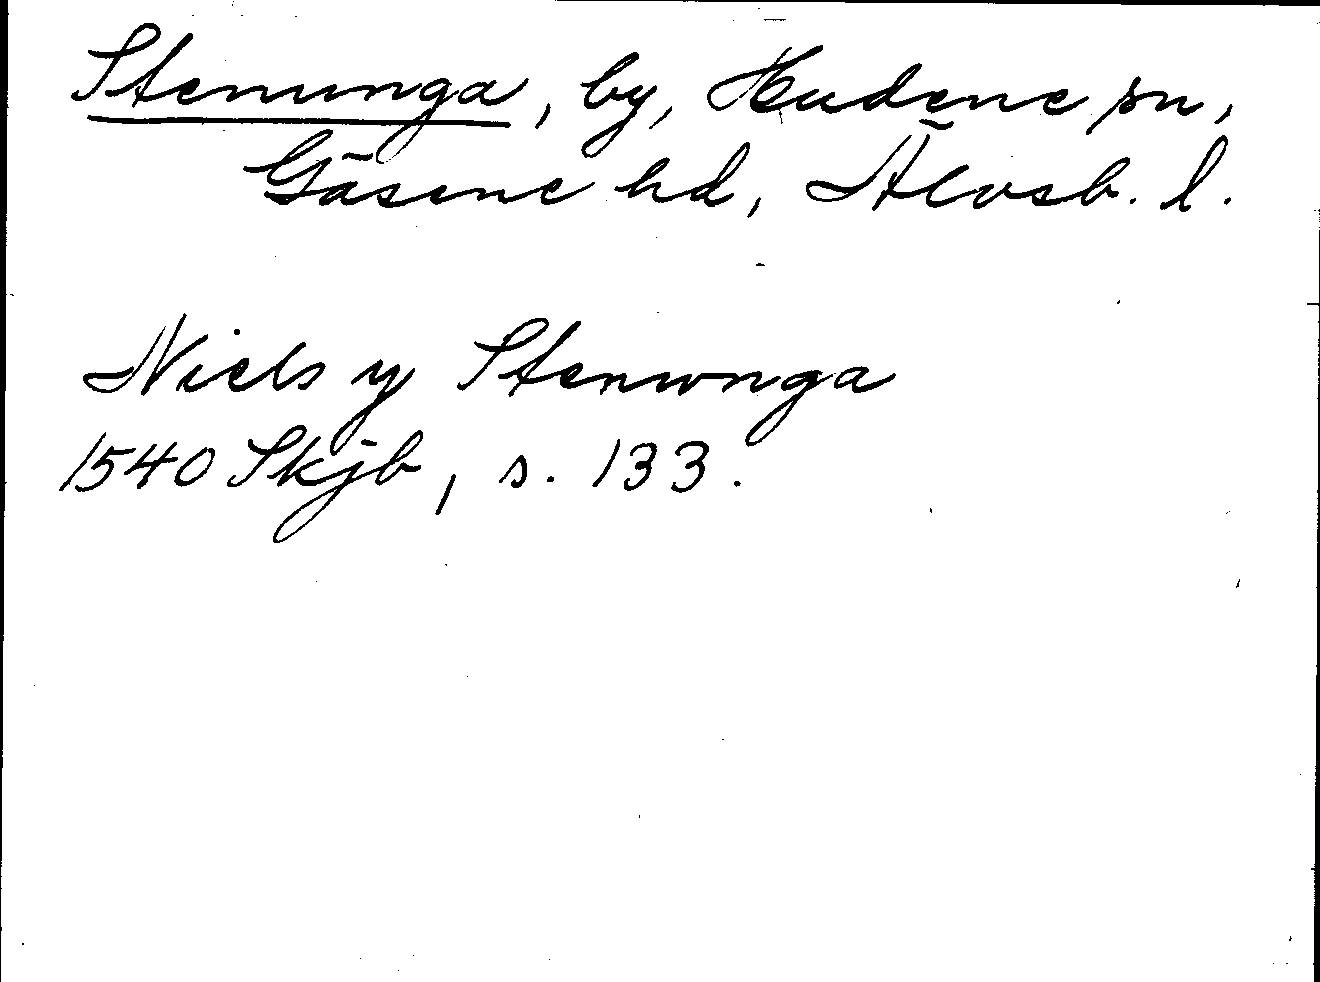 Stenunga, by, Hudene sn,
Gäsene hd, Älvsb. l.
Niels y Stenwnga
1540 Skjb, s. 133.